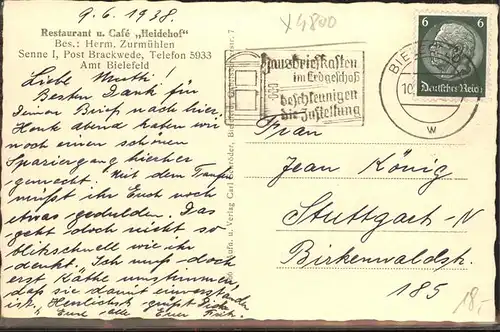 9.6.1938.
x4800
Restaurant u. Café „Heidehof"
Bes.: Herm. Zurmühlen
Senne I, Post Brackwede, Telefon 5933
Amt Bielefeld
Liebe Mutti!
Besten Dank für
Deinen Brief nach hier.
Heute abend haben wir
noch einen schönen
Spaziergang hierher
gemacht. Mit dem Taufen
müßt ihr Euch noch
etwas gedulden. Das
geht doch nicht so
blitzschnell wie ihr
denkt. Ich muß doch
erst Käthe umstimmen,
daß sie damit einverstanden
ist. Herzlichst grüßt Dich
u. Eure alle Euer
Aufn. u. Verlag Carl Schröder,
Hausbriefkasten
im Erdgeschoß
beschleunigen
die Zustellung
BIELEFELD
10.
w
6
6
Deutsches Reich
Frau
Jean König
Stuttgart-N
Birkenwaldstr.
185
18.-